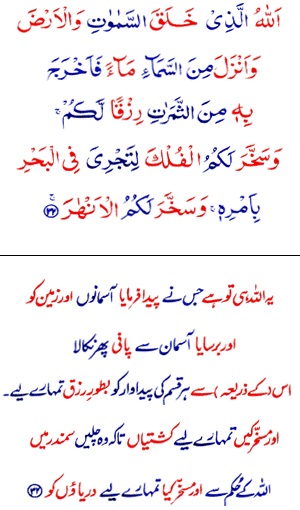 اَللّٰهُ الَّذِیْ خَلَقَ السَّمٰوٰتِ وَالْاَرْضَ
وَاَنْزَلَ مِنَ السَّمَآءِ مَآءً فَاَخْرَجَ
بِهٖ مِنَ الثَّمَرٰتِ رِزْقًا لَّكُمْ ۚ
وَسَخَّرَ لَكُمُ الْفُلْكَ لِتَجْرِیَ فِی الْبَحْرِ
بِاَمْرِهٖ ۚ وَسَخَّرَ لَكُمُ الْاَنْهٰرَ ۚ ﴿۳۲﴾
یہ اللہ ہی تو ہے جس نے پیدا فرمایا آسمانوں اور زمین کو
اور برسایا آسمان سے پانی پھر نکالا
اس (کے ذریعہ) سے ہر قسم کی پیداوار کو بطورِ رزق تمہارے لیے۔
اور مسخر کیں تمہارے لیے کشتیاں تاکہ وہ چلیں سمندر میں
اللہ کے حکم سے اور مسخر کیا تمہارے لیے دریاؤں کو ﴿۳۲﴾